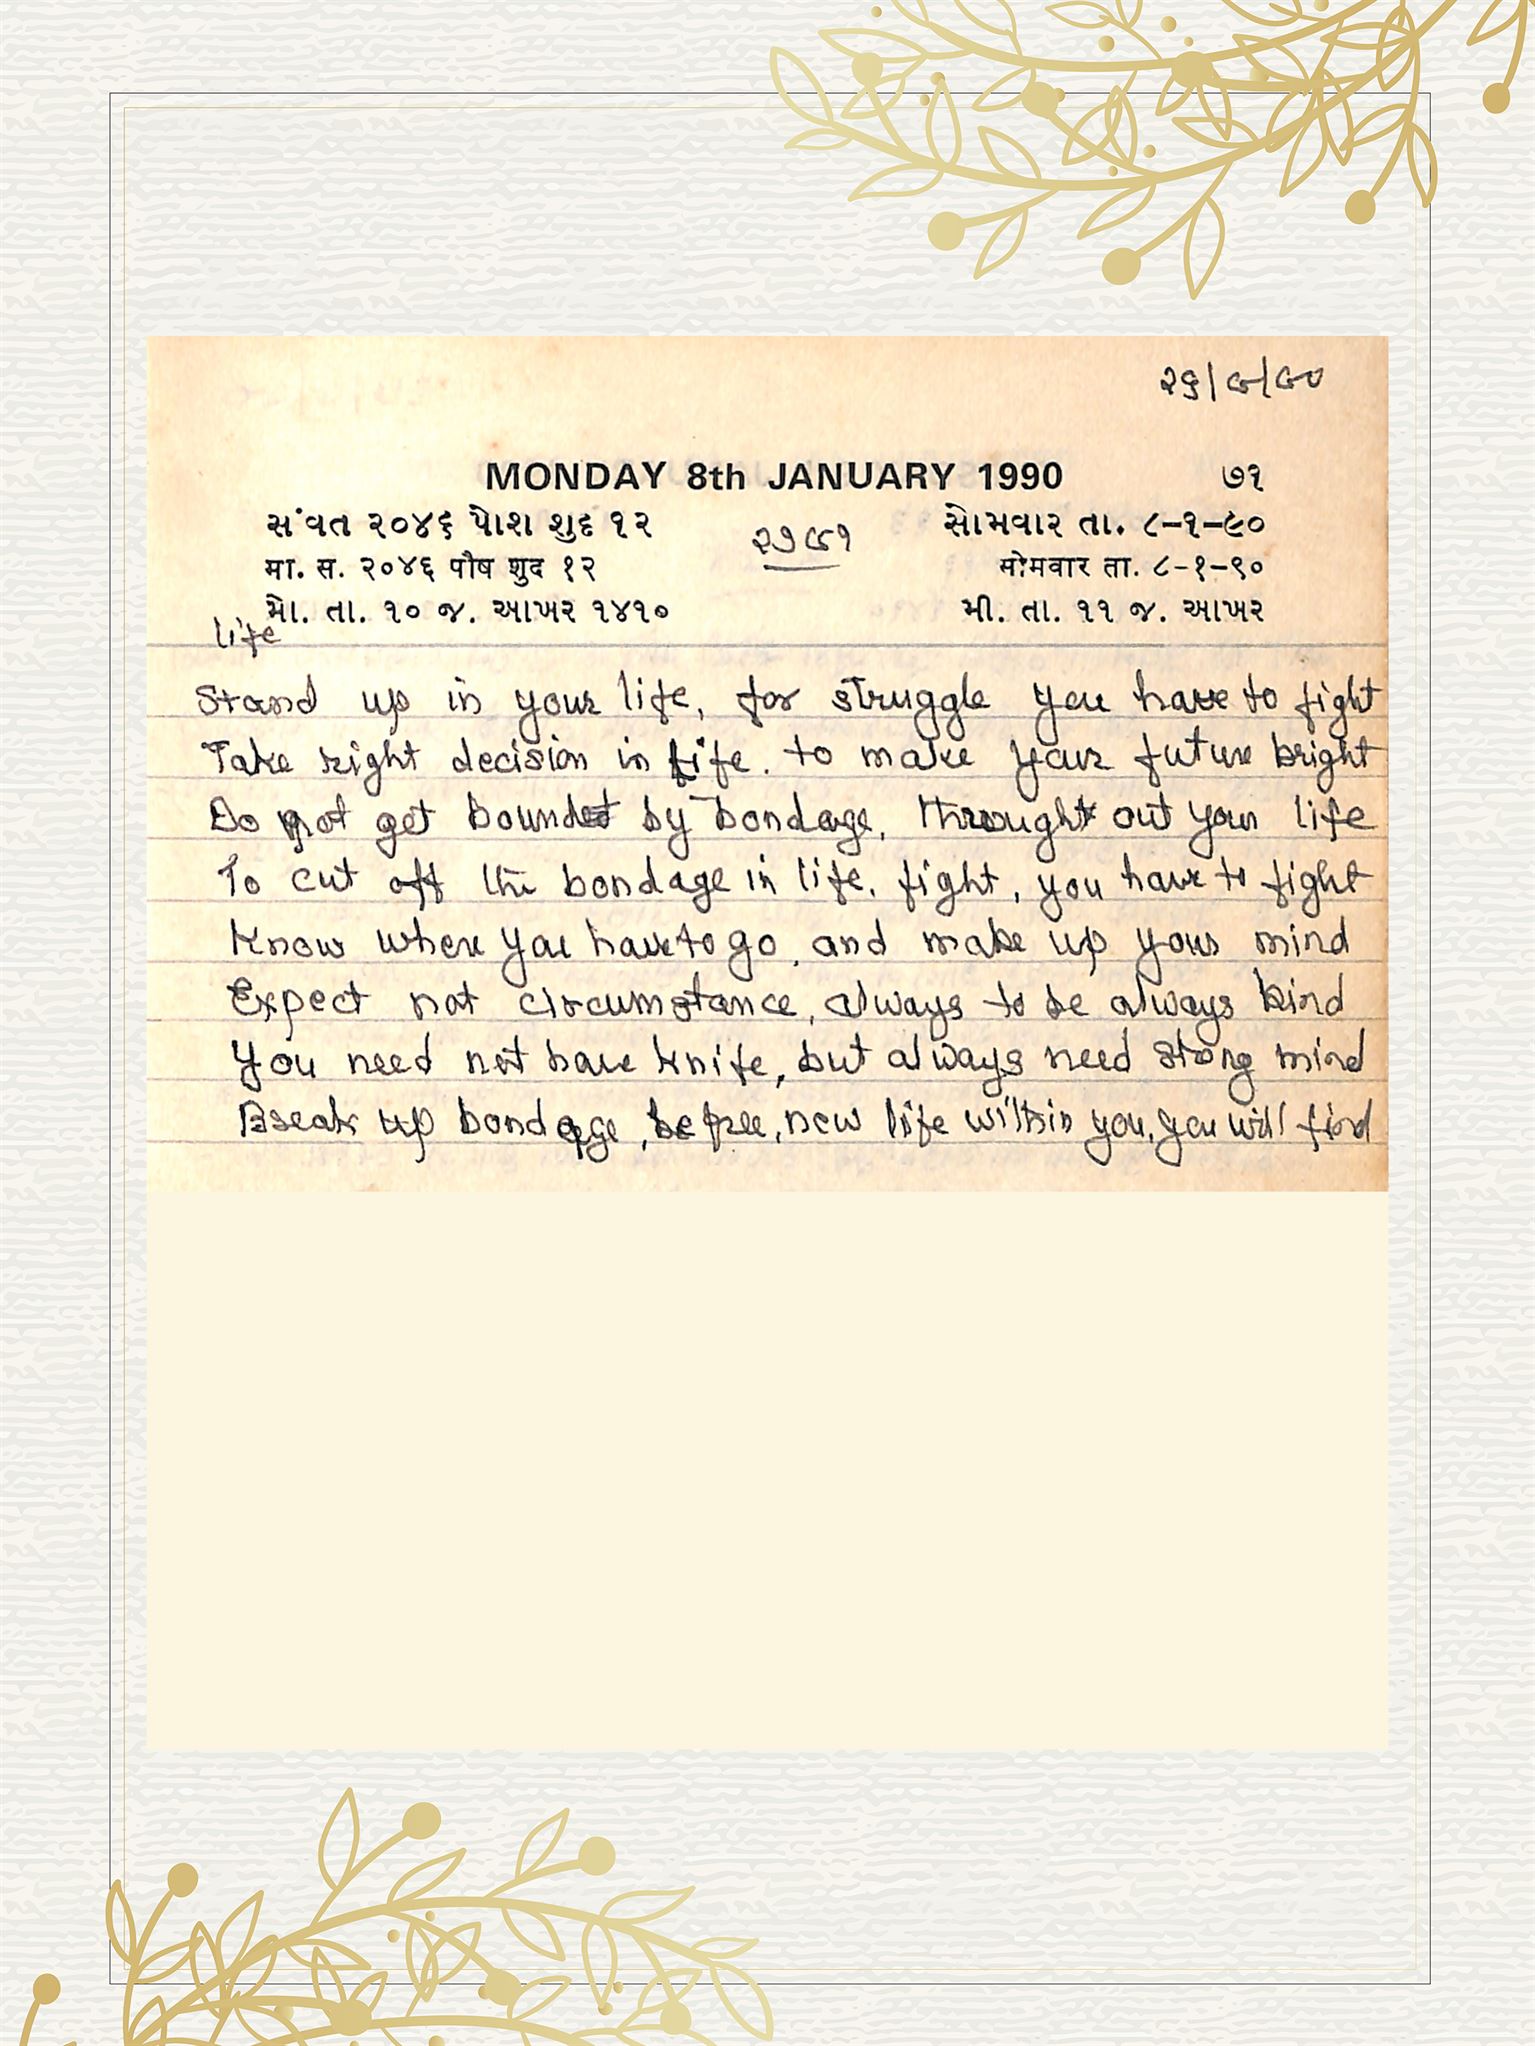 ૨૬/૭/૯૦
MONDAY 8th JANUARY 1990 ૭૧
સંવત ૨૦૪૬ પોશ શુદ ૧૨
સોમવાર તા. ૮-૧-૯૦
मा. स. २०४६ पौष शुद १२
सोमवार ता. ८-१-९०
મો. તા. ૧૦ જ. આખર ૧૪૧૦
મી. તા. ૧૧ જ. આખર
life
Stand up in your life, for struggle you have to fight
Take right decision in life. to make your future bright
Do not get bounded by bondage, throught out your life
To cut off the bondage in life, fight, you have to fight
Know where you have to go, and make up your mind
Expect not circumstance, always to be always kind
You need not have knife, but always need strong mind
Break up bondage, be free, new life within you, you will find